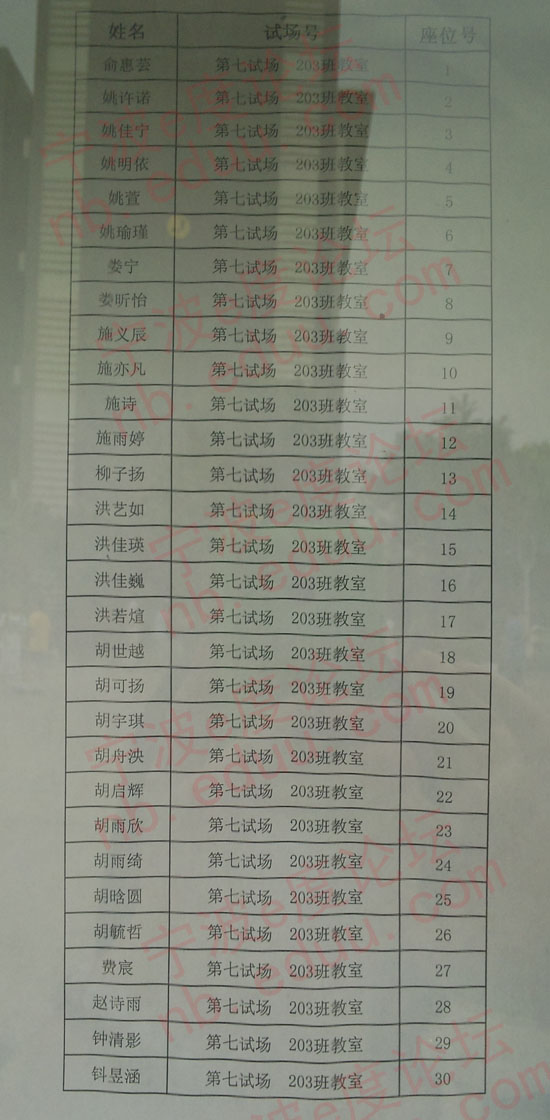 姓名 试场号 座位号
俞惠芸 第七试场 203班教室 1
姚许诺 第七试场 203班教室 2
姚佳宁 第七试场 203班教室 3
姚明依 第七试场 203班教室 4
姚萱 第七试场 203班教室 5
姚瑜瑾 第七试场 203班教室 6
娄宁 第七试场 203班教室 7
娄昕怡 第七试场 203班教室 8
施义辰 第七试场 203班教室 9
施亦凡 第七试场 203班教室 10
施诗 第七试场 203班教室 11
施雨婷 第七试场 203班教室 12
柳子扬 第七试场 203班教室 13
洪艺如 第七试场 203班教室 14
洪佳瑛 第七试场 203班教室 15
洪佳巍 第七试场 203班教室 16
洪若煊 第七试场 203班教室 17
胡世越 第七试场 203班教室 18
胡可扬 第七试场 203班教室 19
胡宇琪 第七试场 203班教室 20
胡舟泱 第七试场 203班教室 21
胡启辉 第七试场 203班教室 22
胡雨欣 第七试场 203班教室 23
胡雨绮 第七试场 203班教室 24
胡晗圆 第七试场 203班教室 25
胡毓哲 第七试场 203班教室 26
费宸 第七试场 203班教室 27
赵诗雨 第七试场 203班教室 28
钟清影 第七试场 203班教室 29
钭昱涵 第七试场 203班教室 30
宁波e度论坛
nb.eduu.com